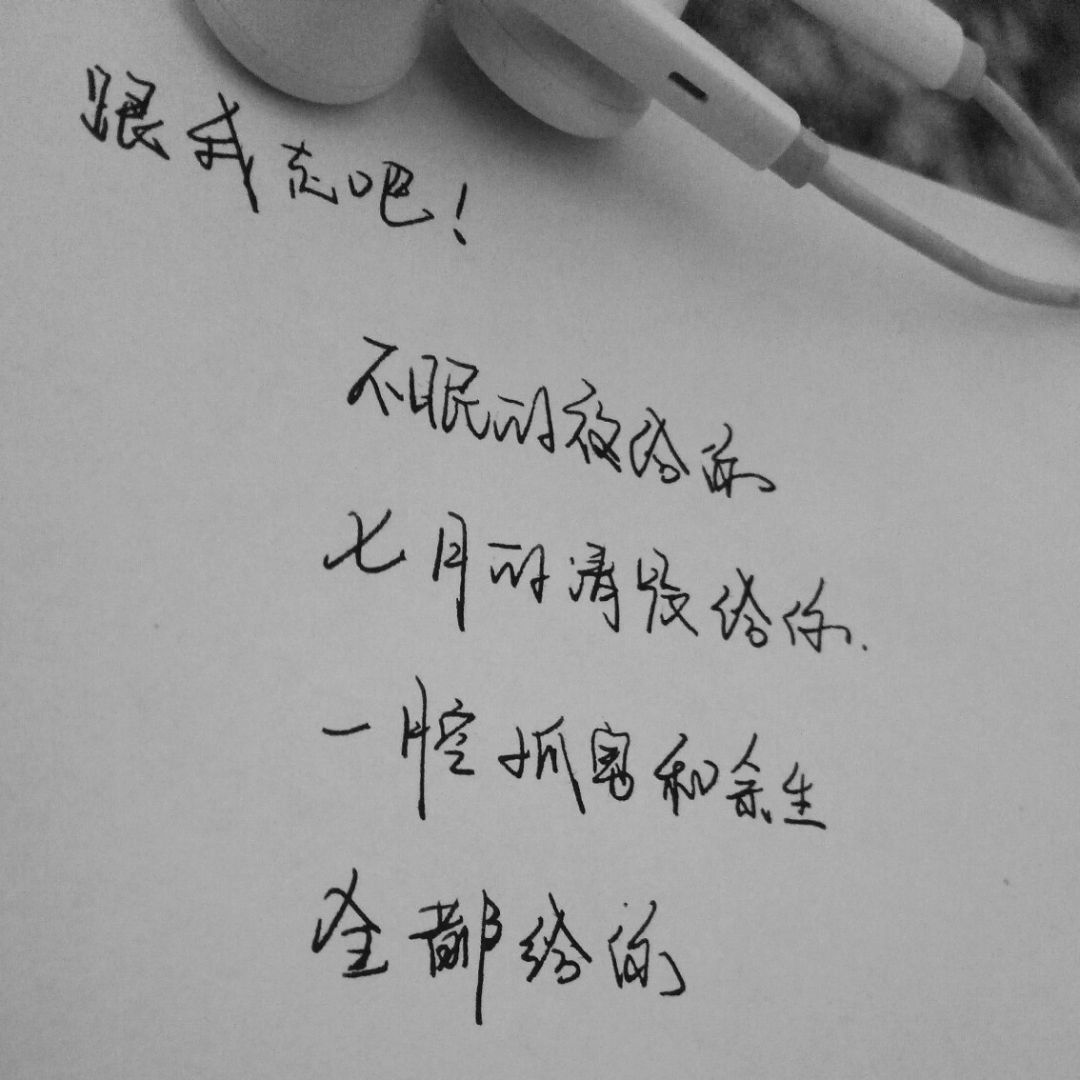 跟我走吧！
不眠的夜给你
七月的清晨给你.
一腔孤勇和余生
全都给你